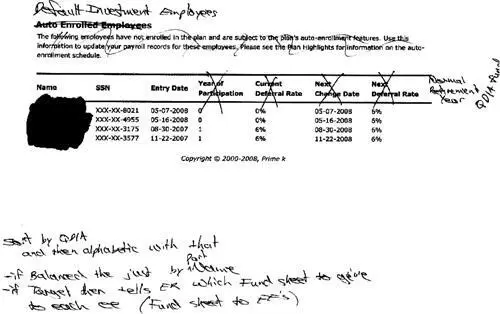 Default Investment Employees
Auto Enrolled Employees
The following employees have not enrolled in the plan and are subject to the plan's auto-enrollment features. Use this
information to update your payroll records for these employees. Please see the Plan Highlights for information on the auto-
enrollment schedule.
Name SSN Entry Date Year of Participation Current Deferral Rate Next Change Date Next Deferral Rate Normal Retirement Year QDIA Fund
XXX-XX-8021 05-07-2008 0 0% 05-07-2008 6%
XXX-XX-4955 05-16-2008 0 0% 05-16-2008 6%
XXX-XX-3175 08-30-2007 1 6% 08-30-2008 6%
XXX-XX-3577 11-22-2007 1 6% 11-22-2008 6%
Copyright © 2000-2008, Prime k
Sort by QDIA
and then alphabetic with that
- if Balanced the just by Part Name
- if Target then tells ER which Fund sheet to give
to each ee (Fund sheet to EE's)